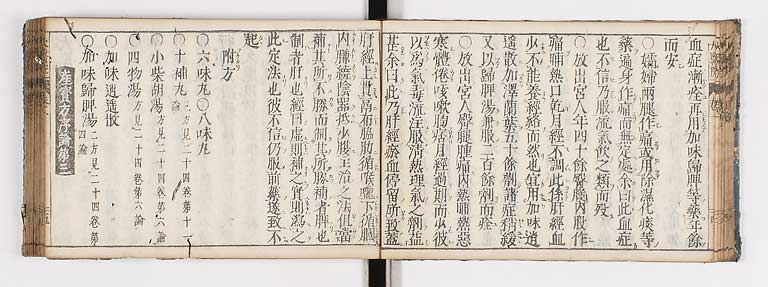 血症漸痊再用加味歸脾等藥年餘
而安
○一孀婦兩腿作痛或用除濕化痰等
藥遍身作痛而無定處余曰此血症
也不信乃服流氣飲之類而歿
○一放出宮人年四十餘臀腿內股作
痛晡熱口乾月經不調此係肝經血
少不能養經絡而然也宜用加味逍
遙散加澤蘭葉五十餘劑諸症稍緩
又以歸脾湯兼服二百餘劑而痊
○一放出宮人臀腿腫痛內熱晡熱惡
寒體倦咳嗽胸痞月經過期而少彼
以為氣毒流注服清熱理氣之劑益
甚余曰此乃肝經瘀血停留所致蓋
肝經上貫膈布脇肋循喉嚨下循膕
內臁繞陰器抵少腹主治之法但當
補其所不勝而制其所勝補者脾也
制者肝也經曰虛則補之實則瀉之
此定法也彼不信仍服前藥遂致不
起
附方
○六味丸○八味丸
○十補丸 三方見二十四卷第十一論
○小柴胡湯 方見二十四卷第六論
○四物湯 方見二十四卷第六論
○加味逍遙散
○加味歸脾湯 二方見二十四卷第四論
產寶方序論第三